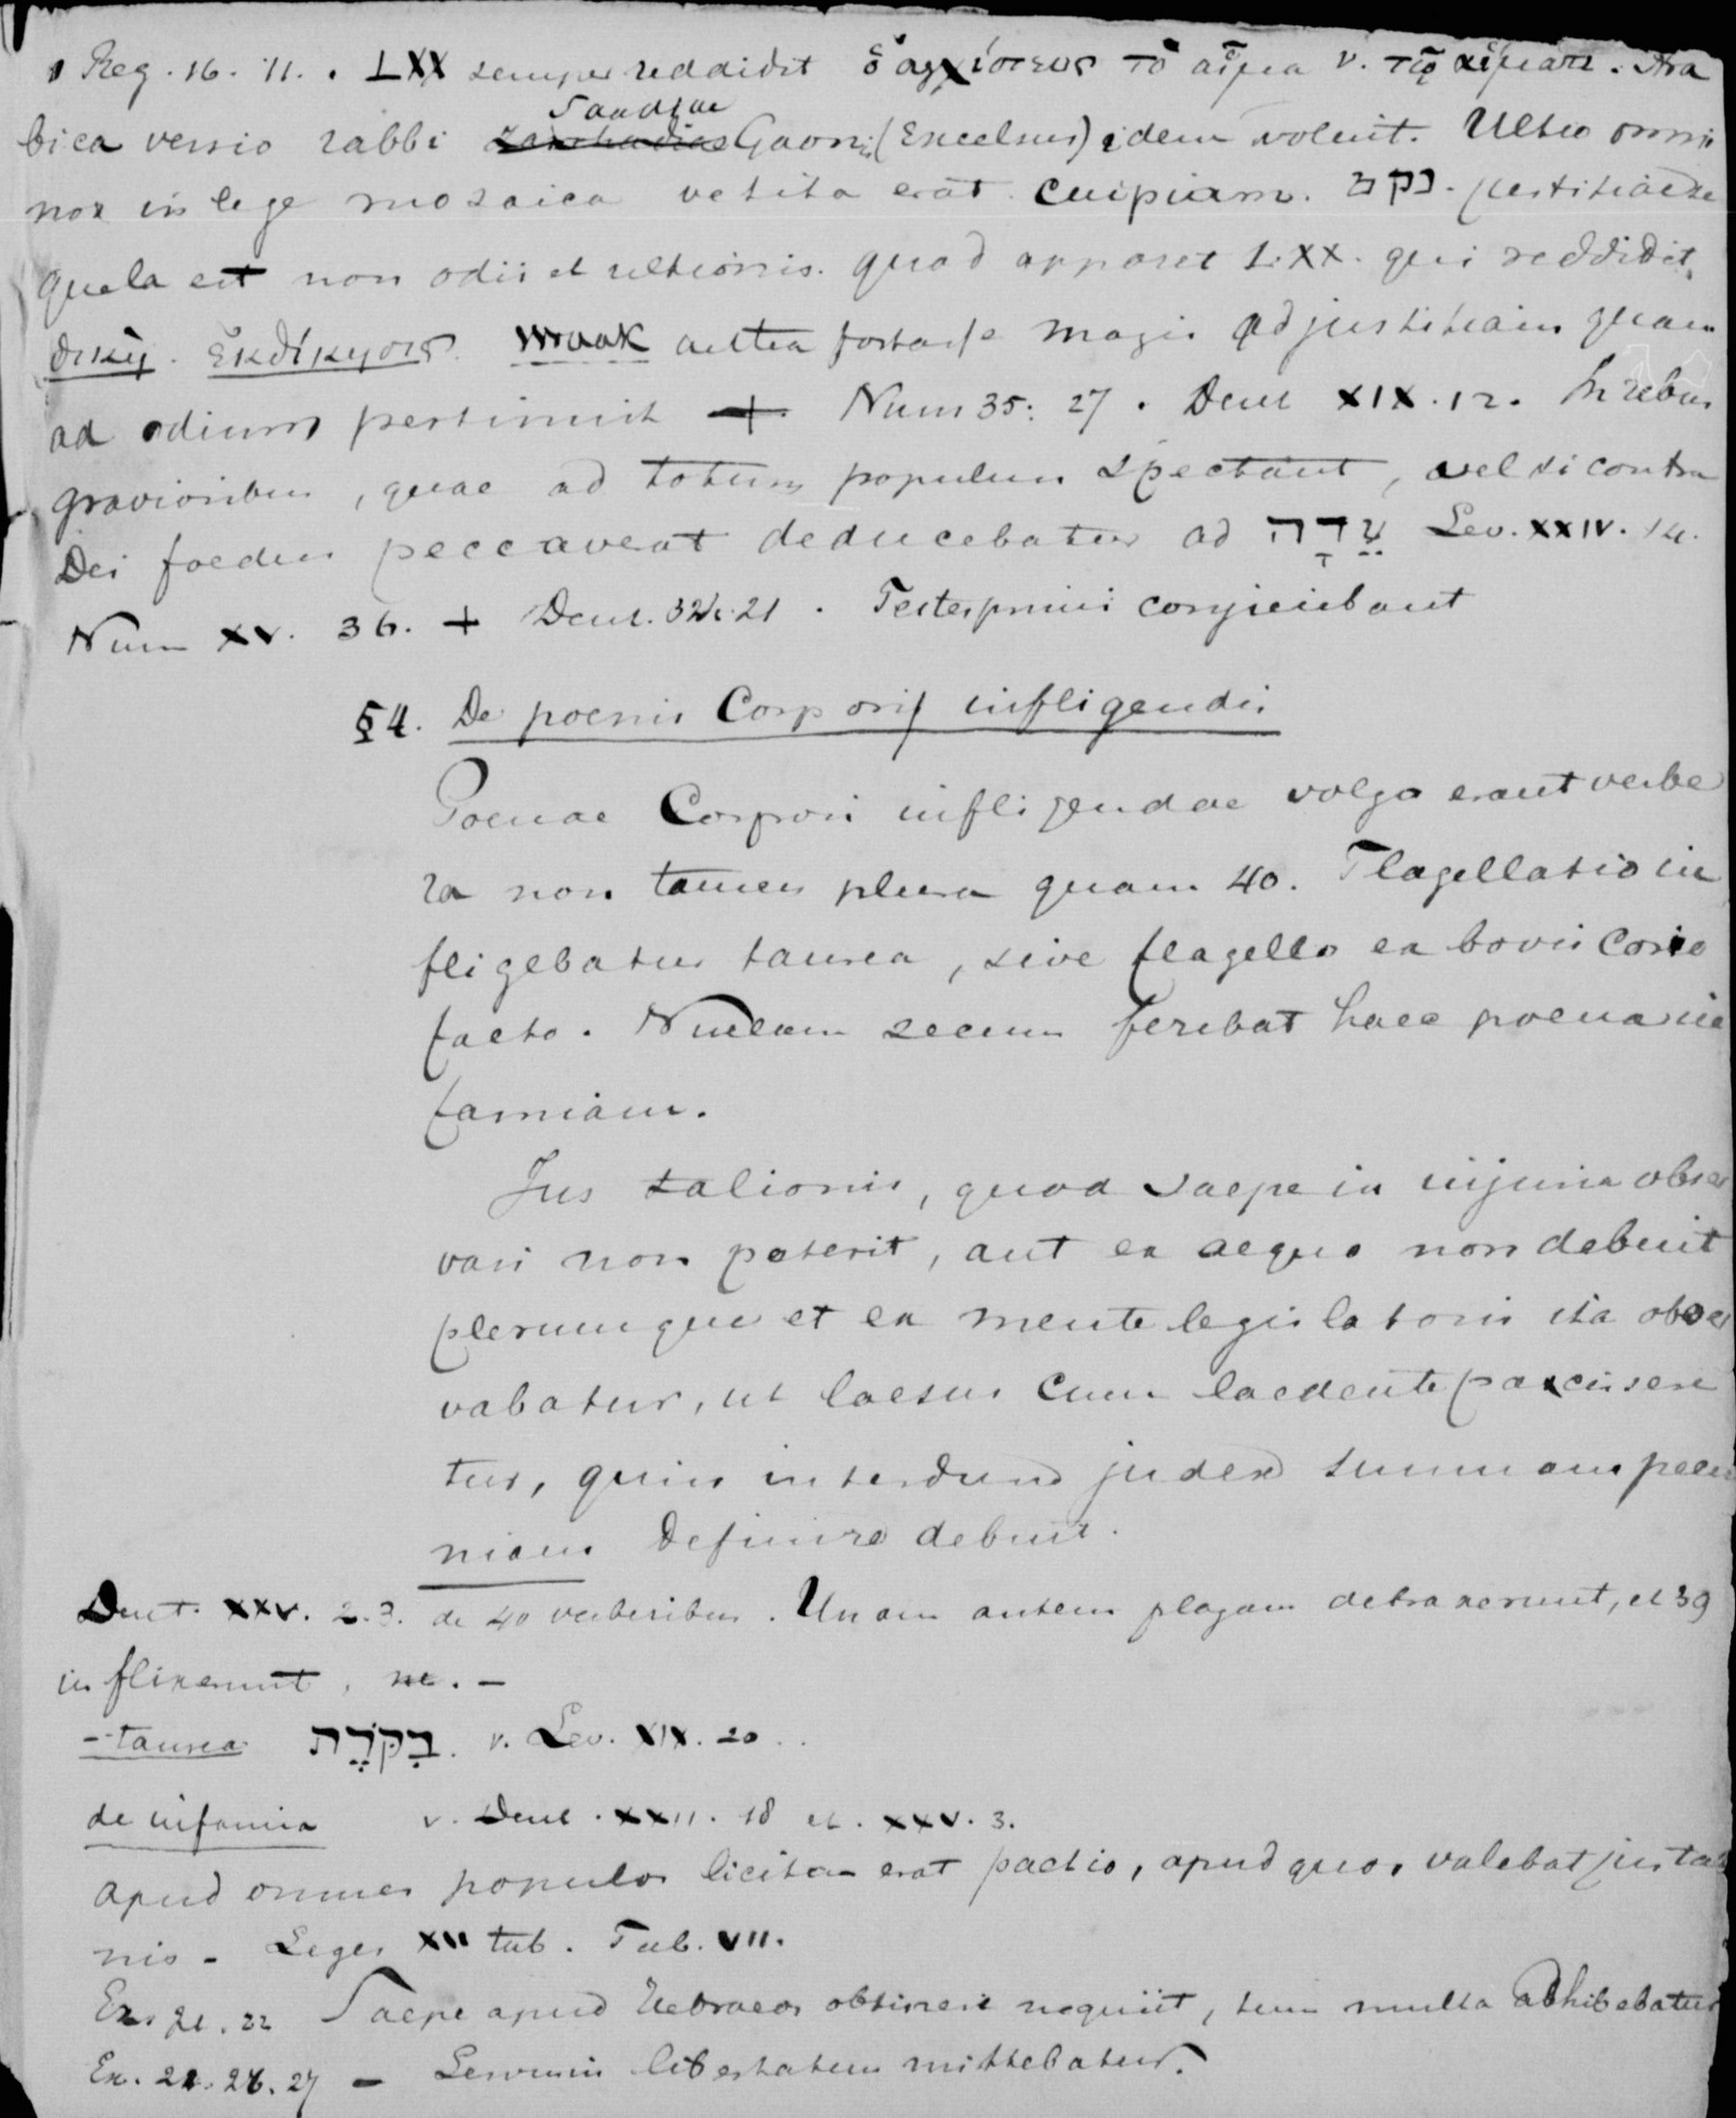 1 Reg. 16. 11. . LXX semper reddidit ὁ ἀγχίστευς τὸ αἷμα v. τῷ αἵματι. Ara
Saadiae
bica versio rabbi Gaon: (Excelsus) idem voluit. Ultio omni
nox in lege mozaica vetita erat cuipiam. נקב. justitiae se
quela est non odii et ultionis. quod apparet LXX. qui reddidit
δικη. Εκδίκησις. wraak autem fortasse magis ad justitiam quam
ad odium pertinuit + Num 35: 27. Deut XIX. 12. In rebus
gravioribus, quae ad totum populum spectant, vel si contra
Dei foedus peccaverat deducebatur ad עֵדָה Lev. XXIV. 14.
Num XV. 36. + Deut. 21 . Testes primi conjiciebant
§4. De poenis Corporis infligendis
Poenae Corpori infligendae volgo erant verbe
ra non tamen plura quam 40. Flagellatio in
fligebatur taurea, sive flagello ex bovis corio
facto. Nullam secum ferebat haec poena in
famiam.
Jus talionis, quod saepe in injuria obser
vari non poterit, aut ex aequo non debuit
plerumque et ex mente legislatoris ita obser
vabatur, ut laesus cum laedente pacisere
tur, quin interdum judex summam pecu
niam definire debuit.
Deut. XXV. 2.3. de 40 verberibus. Unam autem plagam detraxerunt, et 39
inflixerunt, ne. –
– taurea בִּקֹּרֶת. v. Lev. XIX. 20 . .
de infamia v. Deut. XXII. 18 et. XXV. 3.
apud omnes populos licita erat pactio, apud quos valebat jus talio
nis – Leges XII tab. Tab. VII.
Ex. 21. 22 Saepe apud Hebraeos obtineri nequiit, tum multa adhibebatur
Ex. 21. 26. 27 – Servum in libertatem mittebatur.